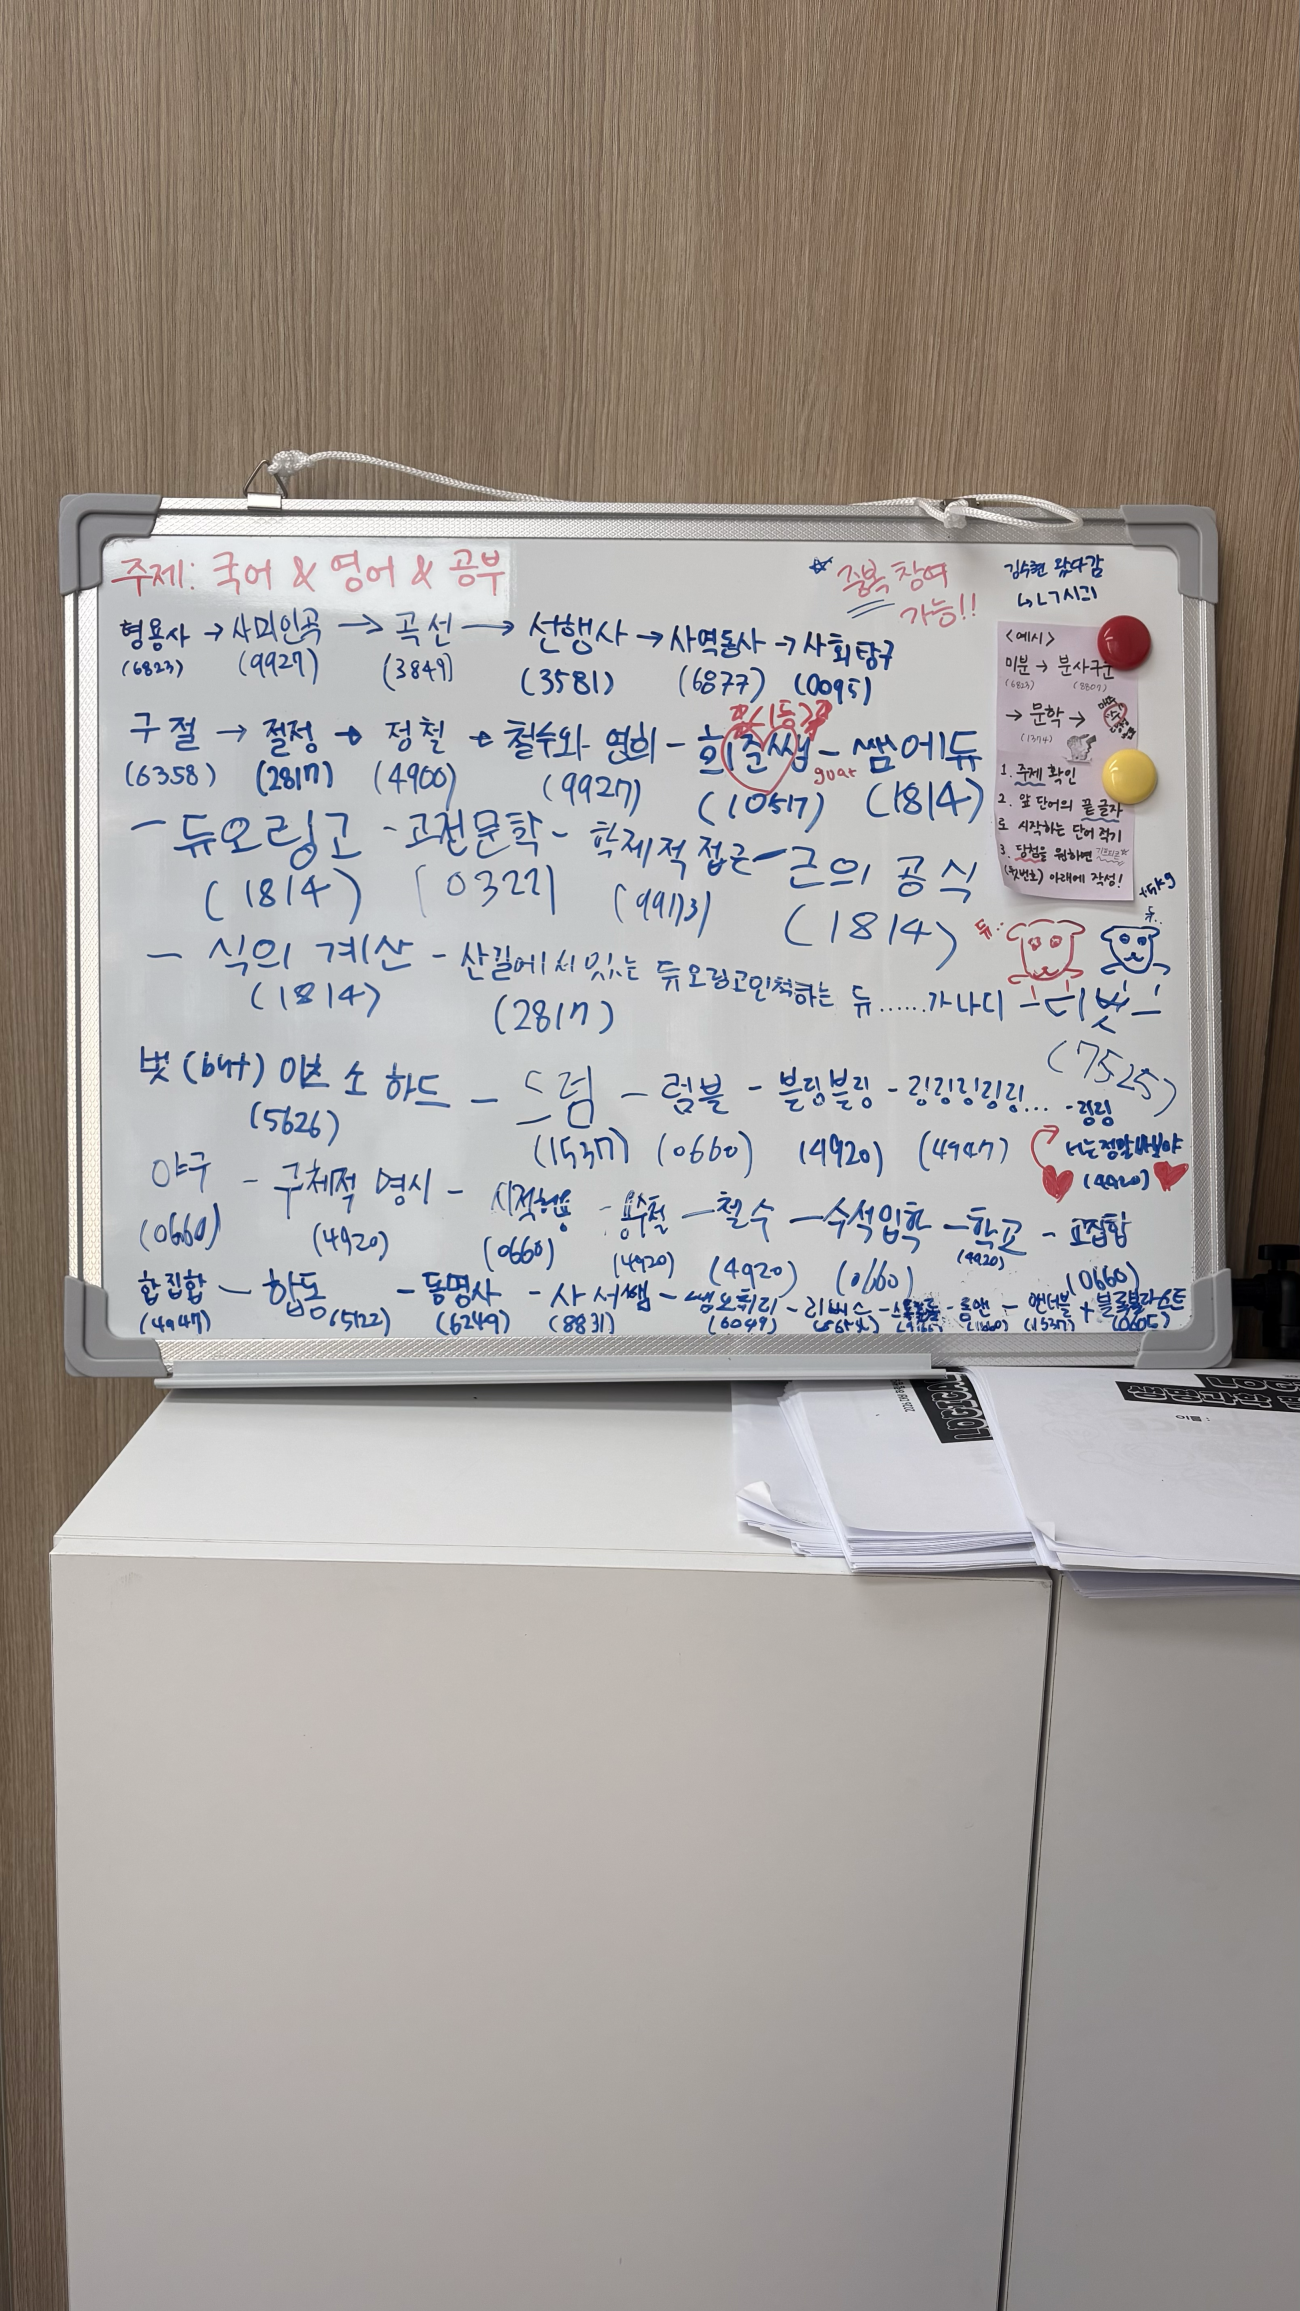 주제: 국어 & 영어 & 공부
☆ 중복 참여
가능!!
김수현 왔다감
형용사 → 사미인곡 → 곡선 → 선행사 → 사역동사 → 사회탐구
(6823) (9927) (3849) (3581) (6877) (0095)
구절 → 절정 → 정철 → 철수와 영희 - 희준쌤 - 쌤에듀
(6358) (2817) (4900) (9927) (10517) (1814)
goat
- 듀오링고 - 고전문학 - 학제적 접근 - 근의 공식
(1814) (0322) (9973) (1814)
- 식의 계산 - 산길에서 맛있는 듀오링고인척하는 듀......가나디 - 디벗 -
(1814) (2817) (7525)
벗 (but) 이츠 소 하드 - 드럼 - 럼블 - 블링블링 - 링링링링링... - 링링
(5626) (1537) (0660) (4920) (4947)
너는정말바보야
(4920)
야구 - 구체적 명시 - 시적허용 - 용수철 - 철수 - 수석입학 - 학교 - 교집합
(0660) (4920) (0660) (4920) (4920) (0660) (4920) (0660)
합집합 - 합동 - 동명사 - 사서쌤 - 쌤오취리 - 리버스 - - 롬앤 - 앤더블 + 블루블라스트
(4947) (5122) (6249) (8831) (6049) (1537)
<예시>
미분 → 분사구문
(6823) (8807)
→ 문학 →
(1374)
1. 주제 확인
2. 앞 단어의 끝 글자
로 시작하는 단어 적기
3. 당첨을 원하면
(폰번호) 아래에 작성!
+5kg
듀..
듀..
LOGICAL
생명과학
이름 :